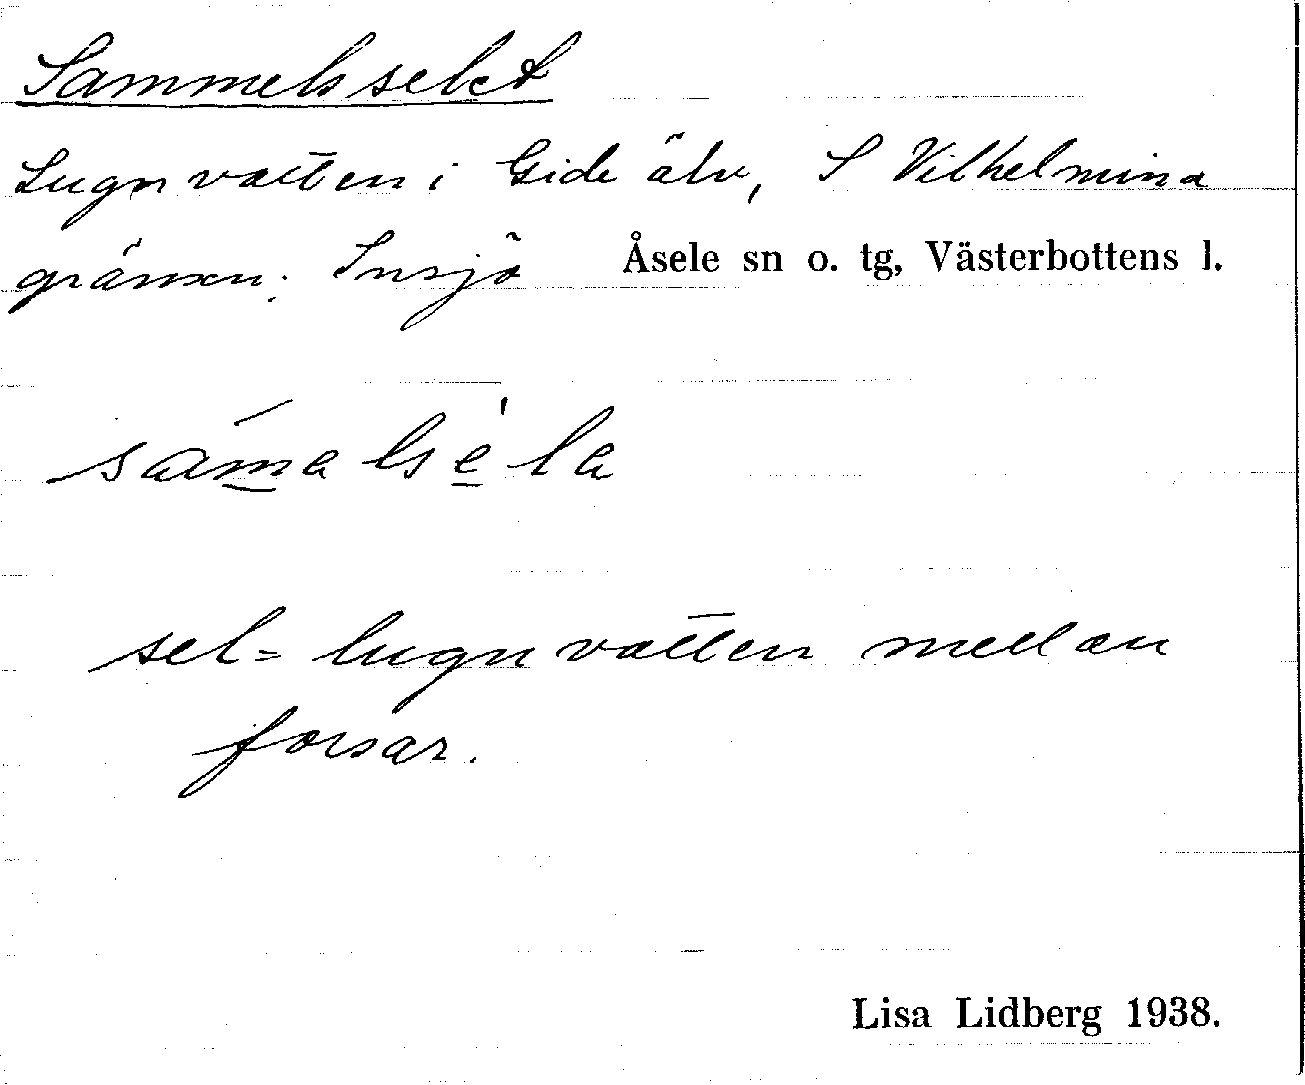 Sammelsselet
Lugnvatten i Gide älv, S Vilhelmina
gränsen. Insjö Åsele sn o. tg, Västerbottens l.
sámalsе̱̍la
sel = lugnvatten mellan
forsar.
Lisa Lidberg 1938.